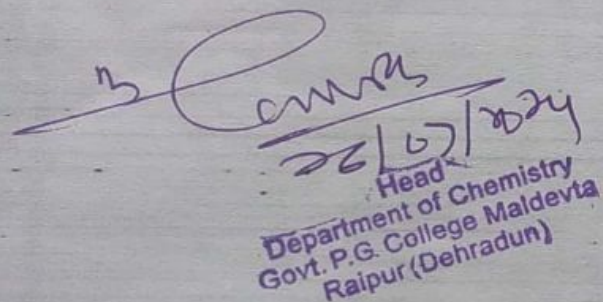 Head
Department of Chemistry
Govt. P.G. College Maldevta
Raipur (Dehradun)